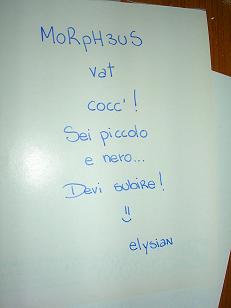 MoRpH3uS
vat
cocc'!
Sei piccolo
e nero...
Devi subire!
=)
elysian